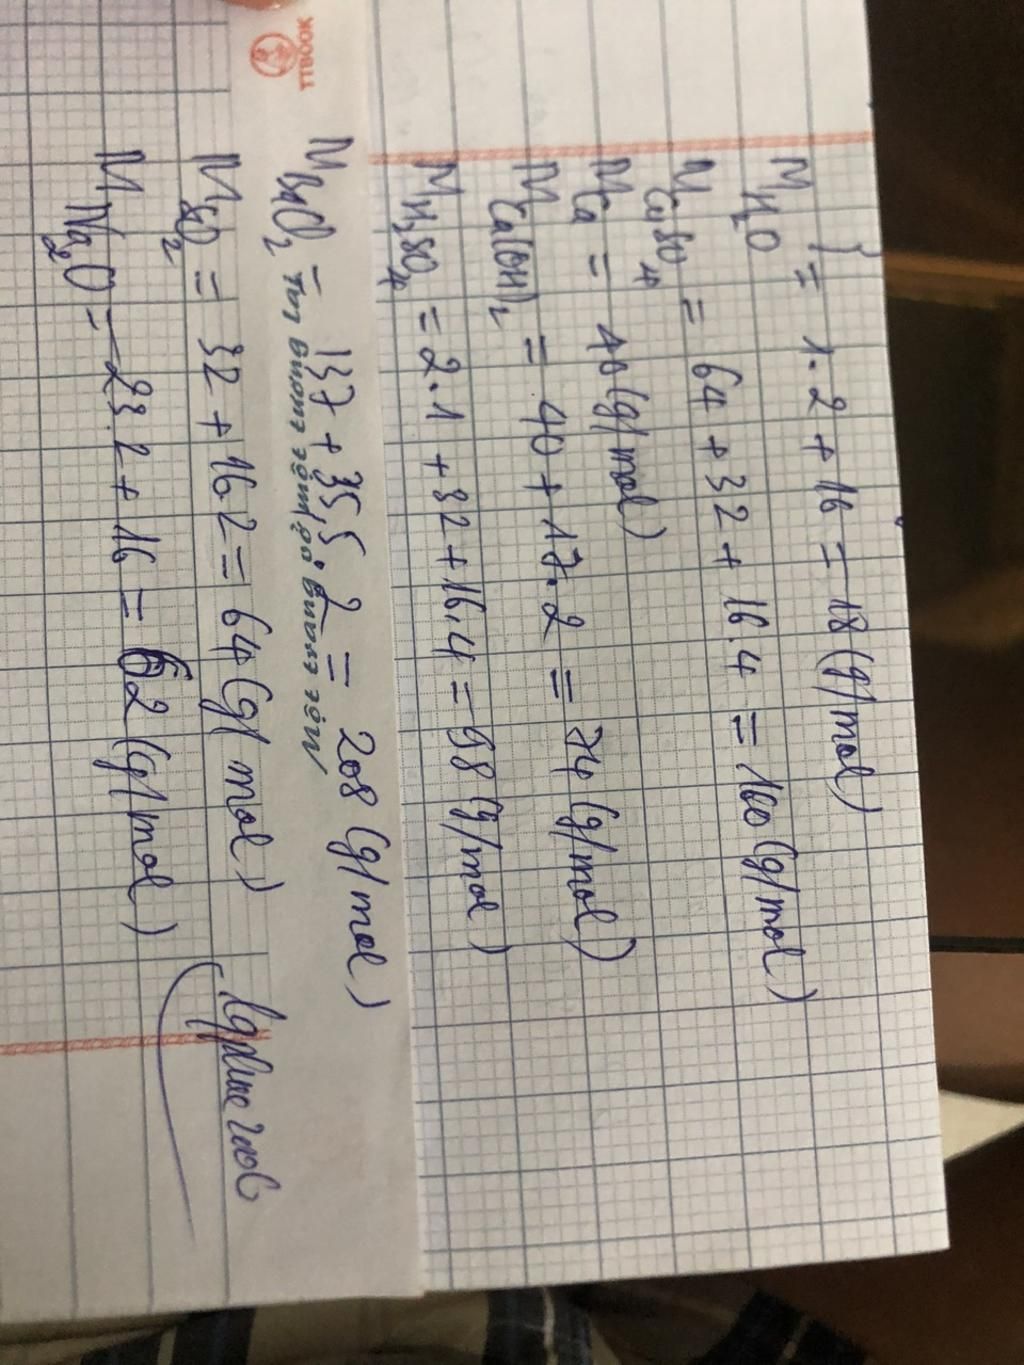 M H₂O } = 1.2 + 16 = 18 (g/mol)
M CuSO₄ = 64 + 32 + 16.4 = 160 (g/mol)
M Ca = 40 (g/mol)
M Ca(OH)₂ = 40 + 17.2 = 74 (g/mol)
M H₂SO₄ = 2.1 + 32 + 16.4 = 98 (g/mol)
M BaCl₂ = 137 + 35,5.2 = 208 (g/mol)
TTBOOK
M SO₂ = 32 + 16.2 = 64 (g/mol)
M Na₂O = 23.2 + 16 = 62 (g/mol)